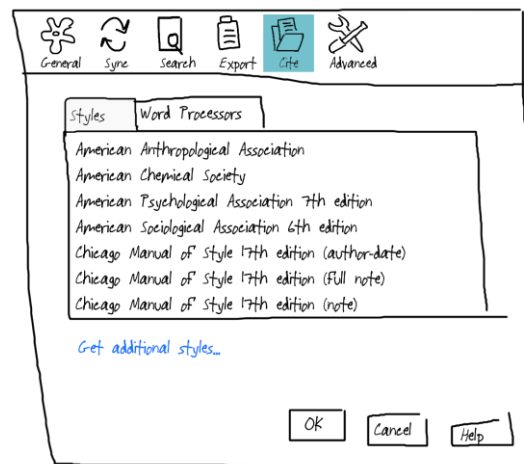 General Sync Search Export Cite Advanced
Styles Word Processors
American Anthropological Association
American Chemical Society
American Psychological Association 7th edition
American Sociological Association 6th edition
Chicago Manual of Style 17th edition (author-date)
Chicago Manual of Style 17th edition (full note)
Chicago Manual of Style 17th edition (note)
Get additional styles...
OK Cancel Help